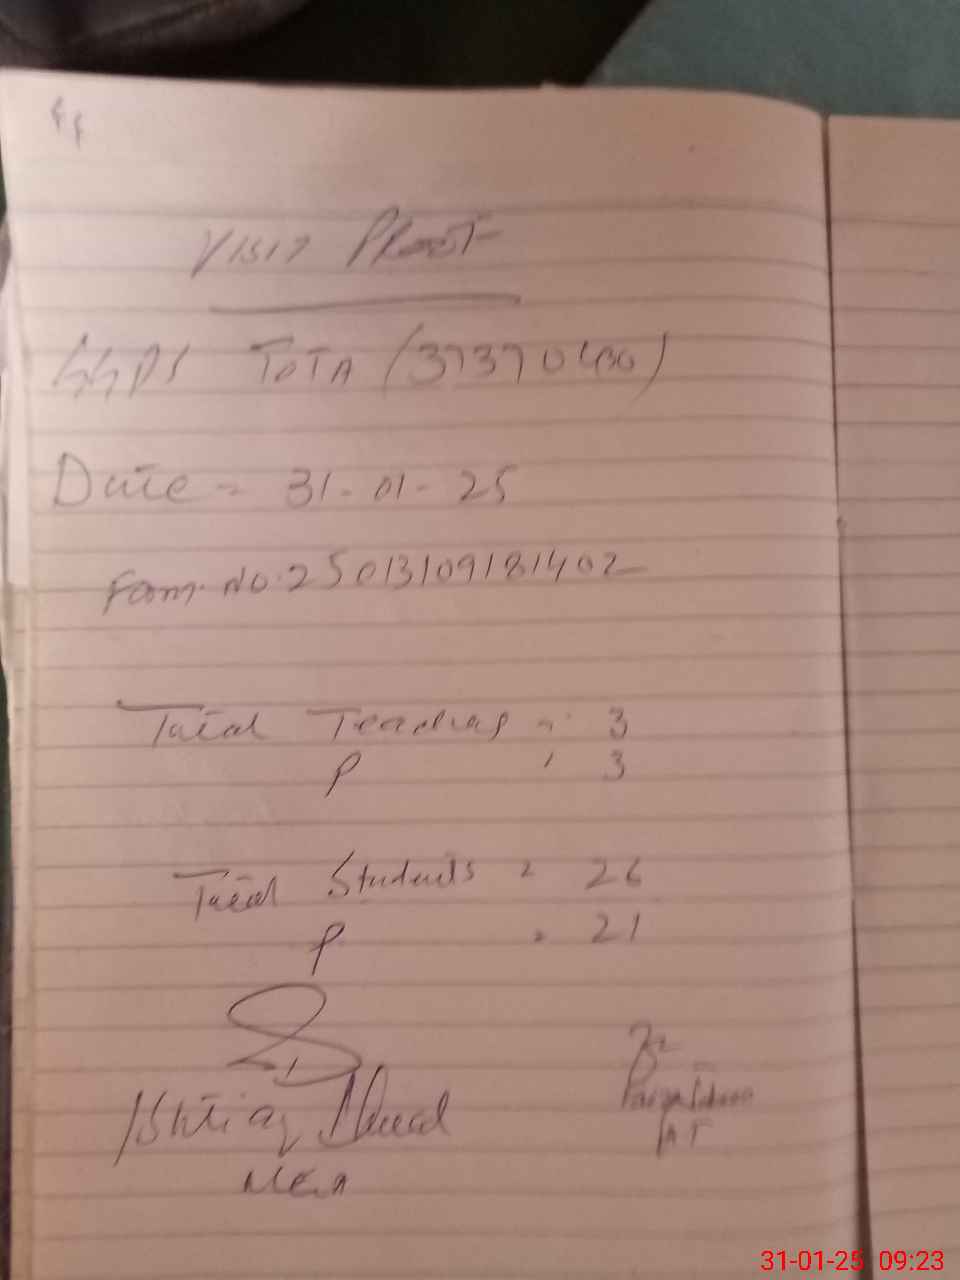 VISIT PROOF
GGPS TOTA (37370400)
Date = 31-01-25
Form No. 25013109181402
Total Teachers = 3
P = 3
Total Students = 26
P = 21
Ishtiaq Ahmad
MEA
31-01-25 09:23